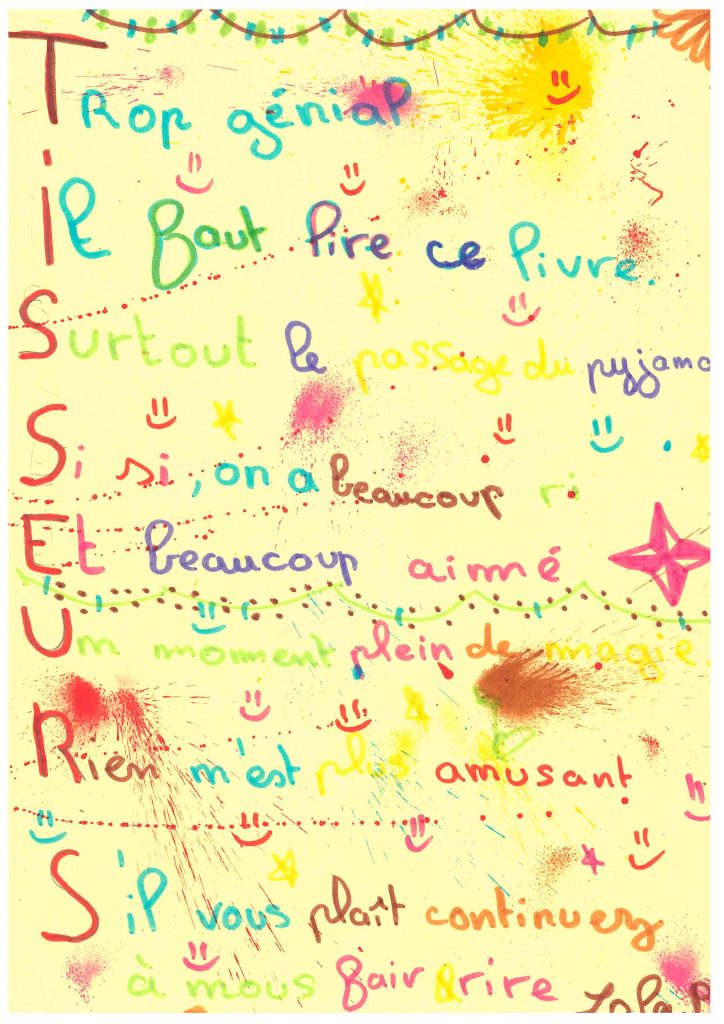 Trop génial
il faut lire ce livre.
Surtout le passage du pyjama
Si si, on a beaucoup ri
Et beaucoup aimé
Un moment plein de magie.
Rien n'est plus amusant
S'il vous plaît continuez
à nous fair rire
Lola.P